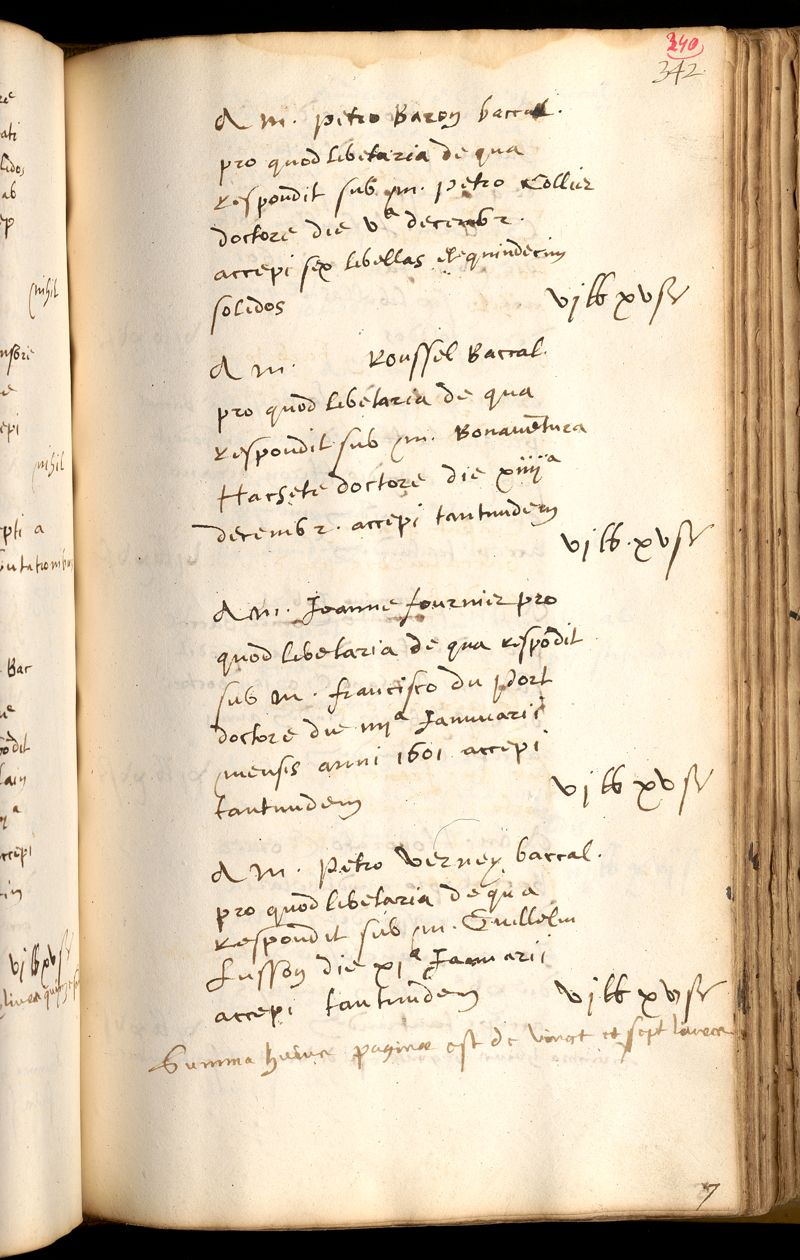 240
342
A m. petro Baron baccal.
pro quodlibetaria de qua
respondit sub m. petro Collier
doctore die vª decembr.
accepi sex libellas et quindecim
solidos vj lb xv s
A m. Roussel Baccal.
pro quodlibetaria de qua
respondit sub m. Bonauētura
Hacsete doctore die xiiijª
decembr. accepi tantundem vj lb. xv s
A m. Joanne fournier pro
quodlibetaria de qua respōdit
sub m. francisco du port
doctore die iiijª Januarii
mensis anni 1601 accepi
tantundem vj lb xv s
A m. petro Verney baccal.
pro quodlibetaria de qua
respondit sub m. Guillelm
Lusson die xjª Januarii
accepi tantundem vj lb xv s
Summa huius paginæ est de vingt et sept
7
nihil
nihil
epi
pti a
Bac
vj lb xv s